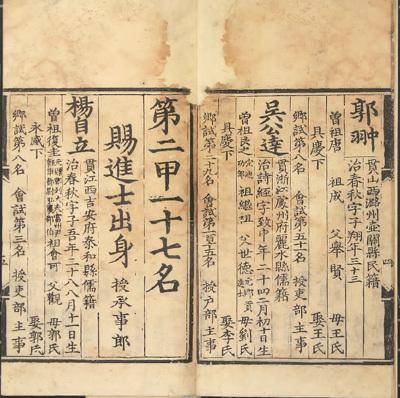 郭翀
貫山西潞州壺關縣民籍
治春秋字子翔年三十三
曾祖唐 祖成 父舉賢 母王氏
具慶下 娶王氏
鄉試第八名 會試第五十名 授吏部主事
吳公達
貫浙江處州府麗水縣儒籍
治詩經字致中年二十四二月初十日生
曾祖民之 祖繼祖 父世德 母劉氏
具慶下 娶李氏
鄉試第二十九名 會試第一百五名 授戶部主事
第二甲一十七名
賜進士出身 授承事郎
楊自立
貫江西吉安府泰和縣儒籍
治春秋字 五年二十八八月十一日生
曾祖復圭 祖會可 父觀 母郭氏
永感下 娶郭氏
鄉試第八名 會試第三名 授吏部主事